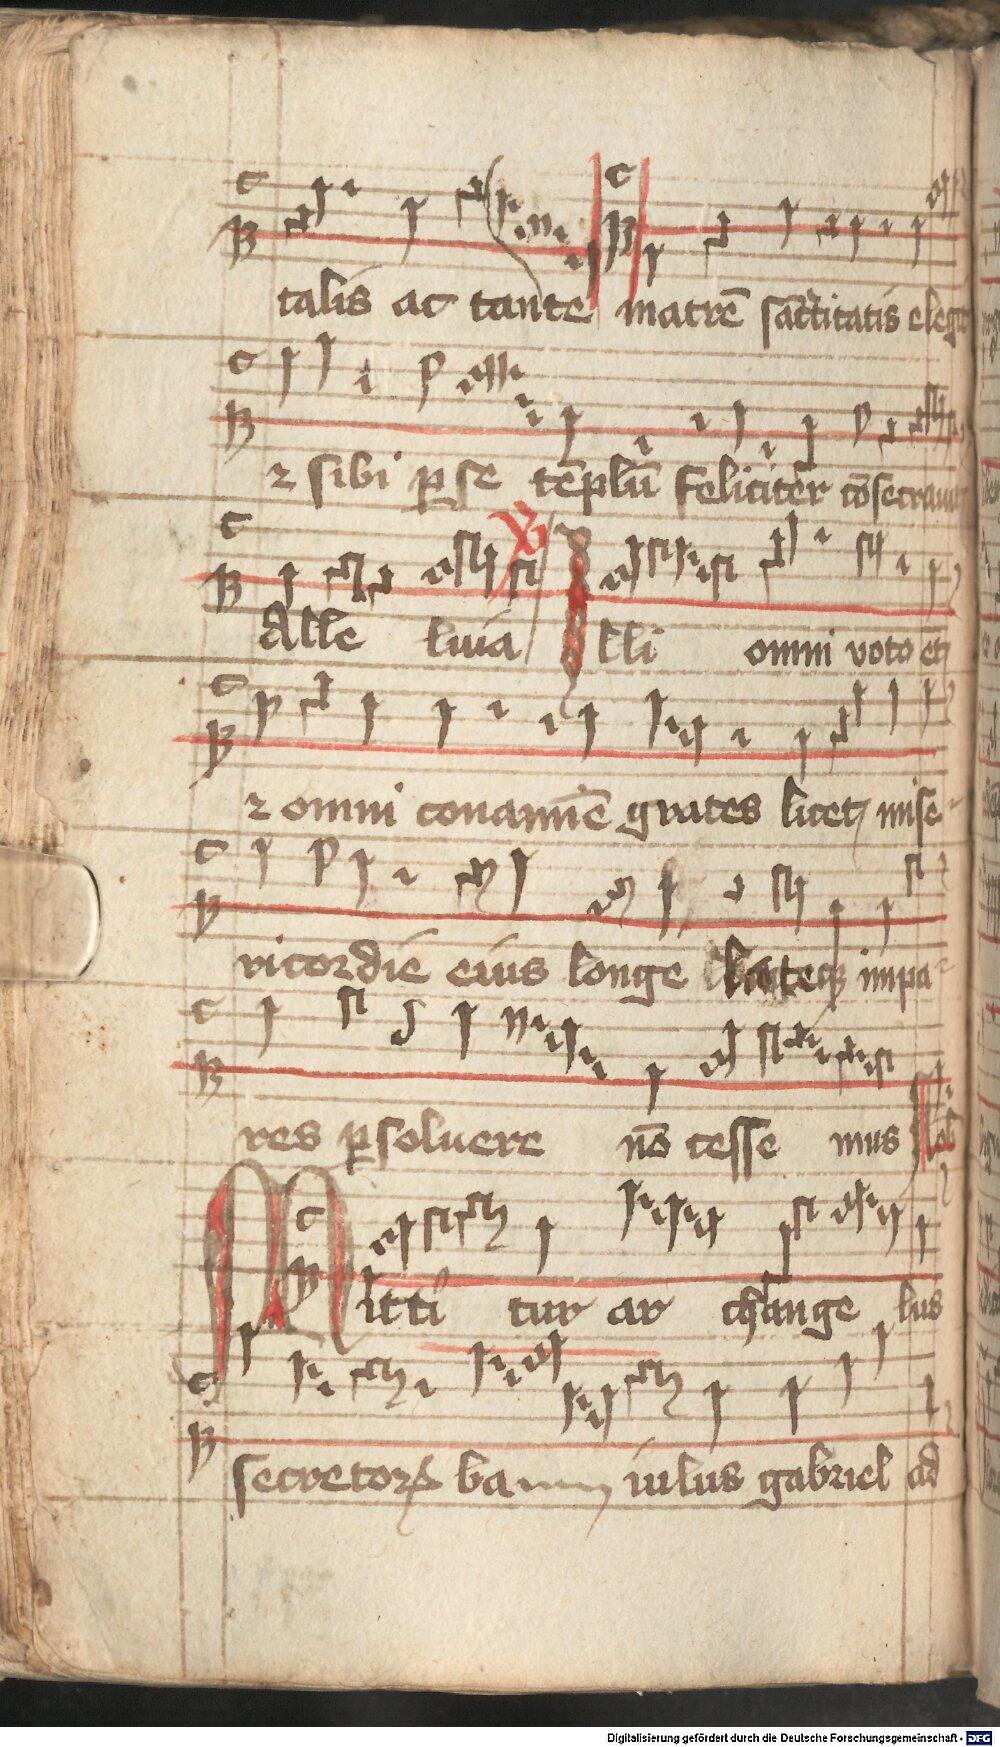 talis ac tante matrē sāctitatis elegit
⁊ sibi ꝑ se tēplū feliciter cōsecrauit
Alle luia Illi omni voto et
⁊ omni conamīe grates licet mise
ricordie eius longe lateqꝫ impa
res ꝑsoluere nō cesse mus
Mitti tur ar change lus
secretoꝝ ba iulus gabriel ad
Digitalisierung gefördert durch die Deutsche Forschungsgemeinschaft - DFG